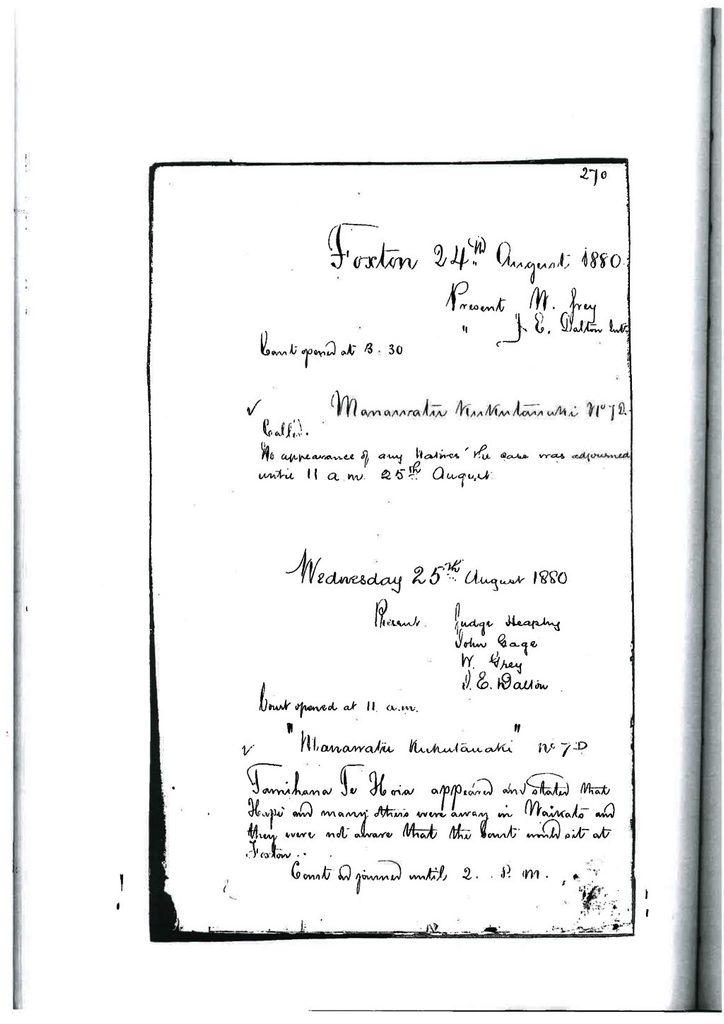 270
Foxton 24th August 1880
Present W. Grey
" J. E. Dalton Intr
Court opened at 3.30
✓ Manawatu Kukutauaki No 7D
Called.
No appearance of any Natives the case was adjourned
until 11 a.m. 25th August
Wednesday 25th August 1880
Present Judge Heaphy
John Gage
W. Grey
J. E. Dalton
Court opened at 11 a.m.
✓ "Manawatu Kukutauaki" No 7D
Tamihana Te Hoia appeared and stated that
and many others were away in Waikato and
they were not aware that the Court would sit at
Foxton..
Court adjourned until 2. P.M.